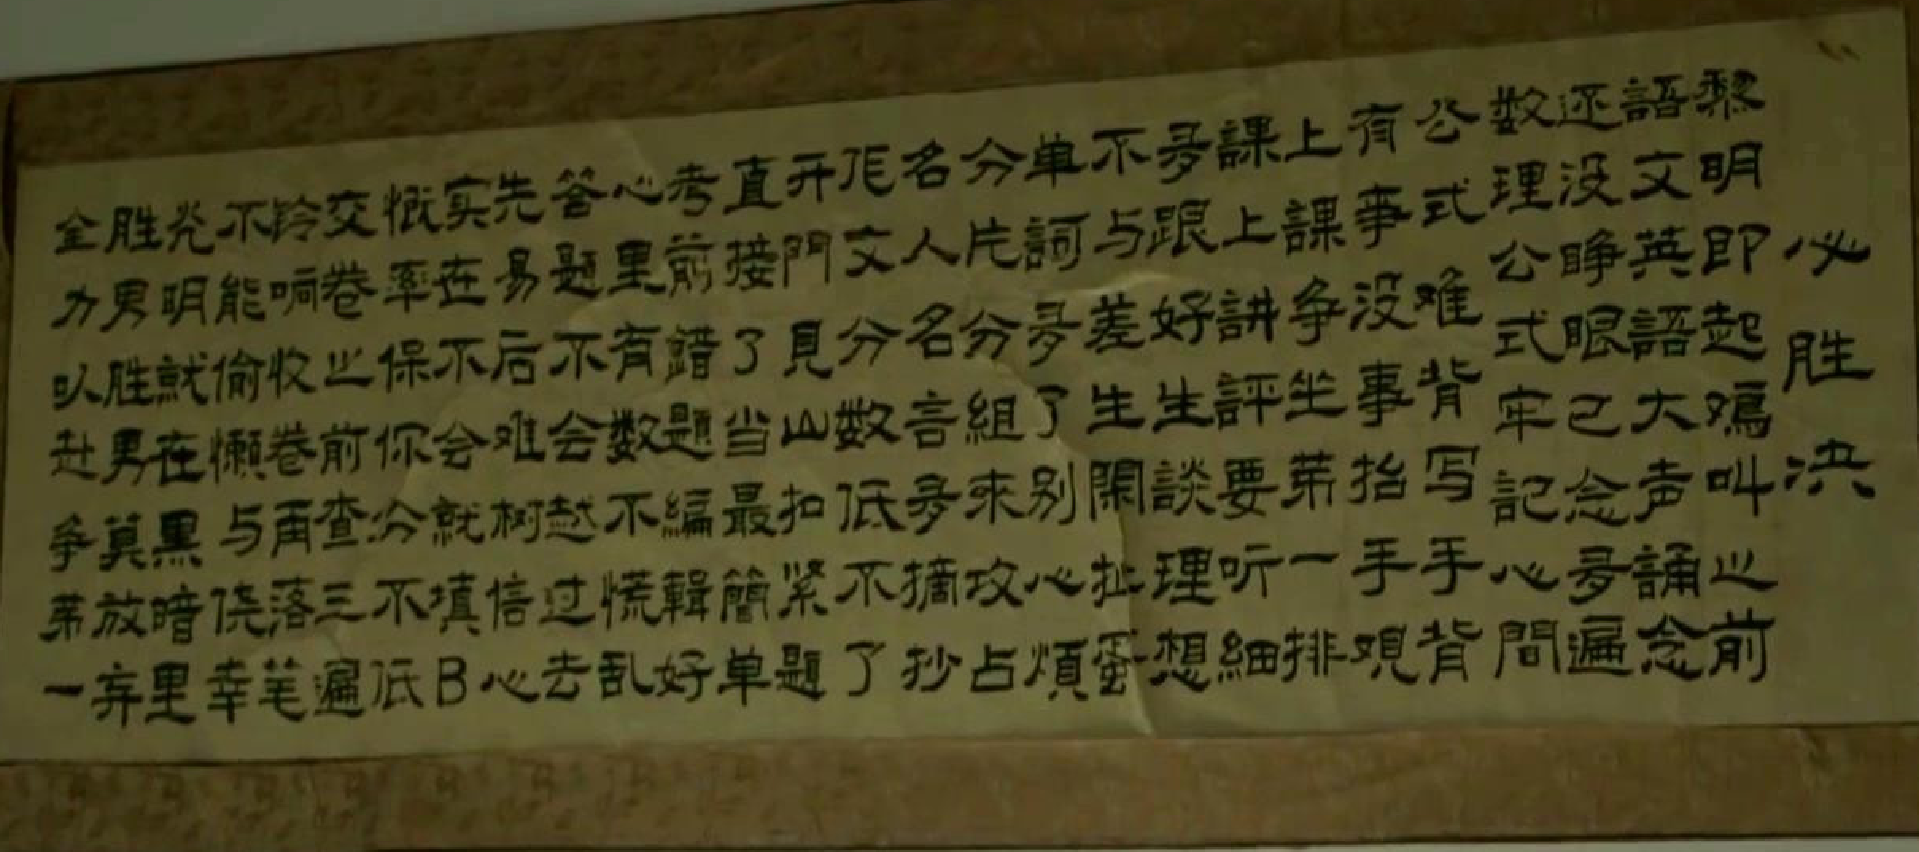 必胜決
黎明即起鸡叫之前
語文英語大声誦念
还没睁眼己念多遍
数理公式牢記心間
公式难背写手背
有事没事抬手观
上課争坐第一排
課上講評要听細
多跟好生談理想
不与差生閑扯蛋
单詞多了别心煩
分片分組来攻占
名人名言多摘抄
作文分数低不了
开門見山扣紧題
直接了当最簡单
考前錯題編輯好
心里有数不慌乱
答題不会越过去
先易后难树信心
实在不会就填B
概率保你分不低
交卷之前查三遍
铃响收卷再落笔
不能偷懒与侥幸
光明就在黑暗里
胜男胜男莫放弃
全力以赴争第一